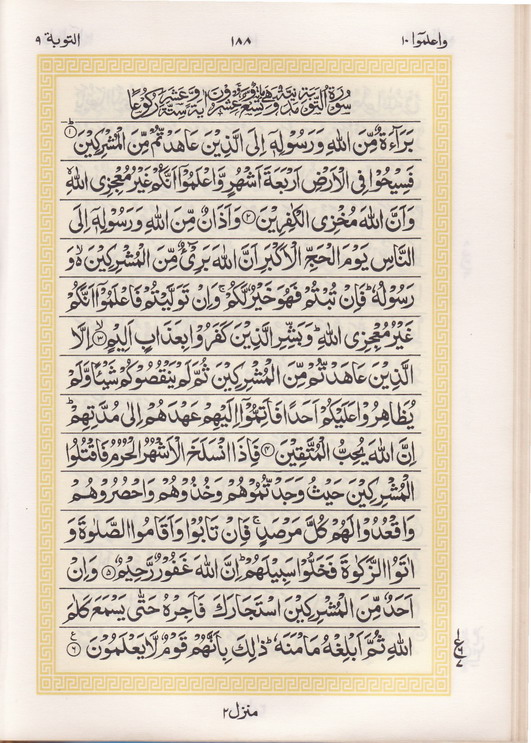 واعلموا ١٠ ١٨٨ التوبة ٩
سُوْرَةُ التَّوْبَةِ مَدَنِيَّةٌ وَّهِيَ مِائَةٌ وَّتِسْعٌ وَّعِشْرُوْنَ اٰيَةً وَّسِتَّةَ عَشَرَ رُكُوْعًا
بَرَآءَةٌ مِّنَ اللّٰهِ وَرَسُوْلِهٖۤ اِلَى الَّذِيْنَ عَاهَدْتُّمْ مِّنَ الْمُشْرِكِيْنَؕ ۝۱
فَسِيْحُوْا فِى الْاَرْضِ اَرْبَعَةَ اَشْهُرٍ وَّاعْلَمُوْۤا اَنَّكُمْ غَيْرُ مُعْجِزِى اللّٰهِ
وَاَنَّ اللّٰهَ مُخْزِى الْكٰفِرِيْنَ ۝۲ وَاَذَانٌ مِّنَ اللّٰهِ وَرَسُوْلِهٖۤ اِلَى
النَّاسِ يَوْمَ الْحَجِّ الْاَكْبَرِ اَنَّ اللّٰهَ بَرِيْٓءٌ مِّنَ الْمُشْرِكِيْنَ ۙ۬ وَ
رَسُوْلُهٗؕ فَاِنْ تُبْتُمْ فَهُوَ خَيْرٌ لَّكُمْۚ وَاِنْ تَوَلَّيْتُمْ فَاعْلَمُوْۤا اَنَّكُمْ
غَيْرُ مُعْجِزِى اللّٰهِؕ وَبَشِّرِ الَّذِيْنَ كَفَرُوْا بِعَذَابٍ اَلِيْمٍۙ ۝۳ اِلَّا
الَّذِيْنَ عَاهَدْتُّمْ مِّنَ الْمُشْرِكِيْنَ ثُمَّ لَمْ يَنْقُصُوْكُمْ شَيْـًٔا وَّلَمْ
يُظَاهِرُوْا عَلَيْكُمْ اَحَدًا فَاَتِمُّوْۤا اِلَيْهِمْ عَهْدَهُمْ اِلٰى مُدَّتِهِمْؕ
اِنَّ اللّٰهَ يُحِبُّ الْمُتَّقِيْنَ ۝۴ فَاِذَا انْسَلَخَ الْاَشْهُرُ الْحُرُمُ فَاقْتُلُوا
الْمُشْرِكِيْنَ حَيْثُ وَجَدْتُّمُوْهُمْ وَخُذُوْهُمْ وَاحْصُرُوْهُمْ
وَاقْعُدُوْا لَهُمْ كُلَّ مَرْصَدٍۚ فَاِنْ تَابُوْا وَاَقَامُوا الصَّلٰوةَ وَ
اٰتَوُا الزَّكٰوةَ فَخَلُّوْا سَبِيْلَهُمْؕ اِنَّ اللّٰهَ غَفُوْرٌ رَّحِيْمٌ ۝۵ وَاِنْ
اَحَدٌ مِّنَ الْمُشْرِكِيْنَ اسْتَجَارَكَ فَاَجِرْهُ حَتّٰى يَسْمَعَ كَلٰمَ
اللّٰهِ ثُمَّ اَبْلِغْهُ مَاْمَنَهٗؕ ذٰلِكَ بِاَنَّهُمْ قَوْمٌ لَّا يَعْلَمُوْنَ ۝۶
منزل ۲